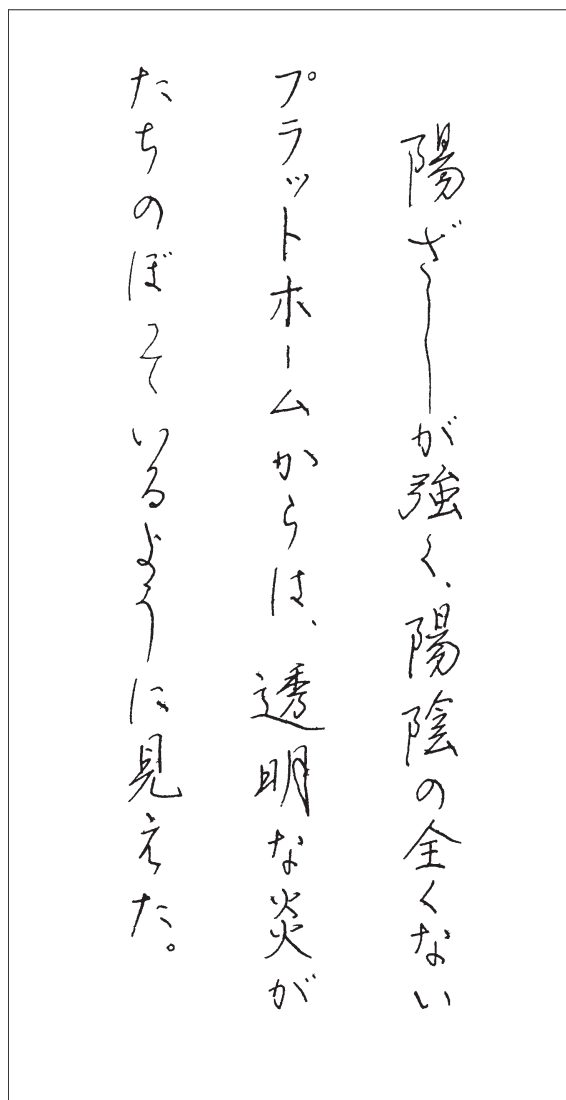 陽ざしが強く、陽陰の全くない
プラットホームからは、透明な炎が
たちのぼっているように見えた。